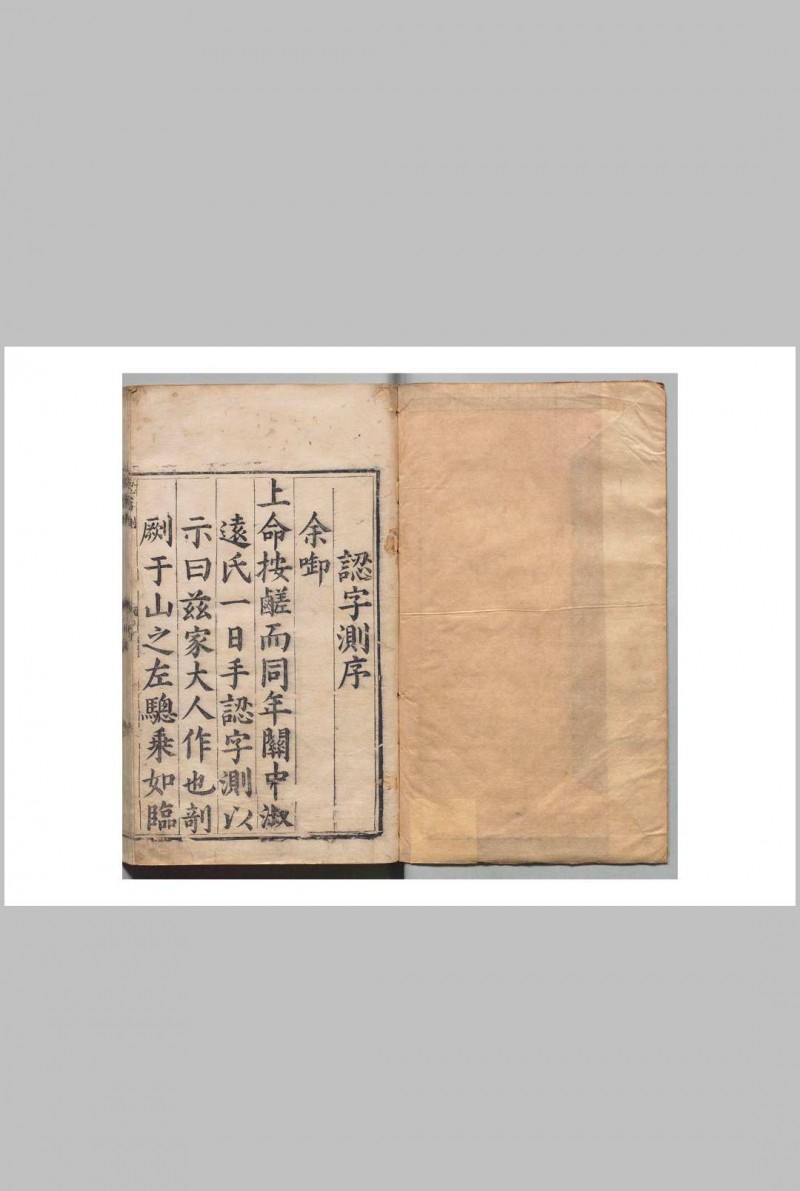 認字測序
余啣
上命按鹺而同年關中淑
遠氏一日手認字測以
示曰兹家大人作也剖
劂于山之左驄乘如臨